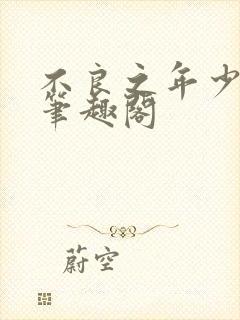 不良之年少
筆趣閣
蔚空